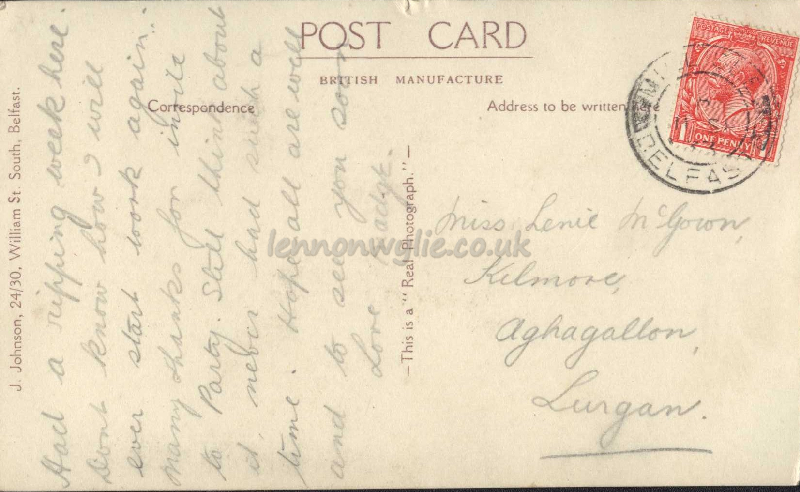 POST CARD
BRITISH MANUFACTURE
Correspondence
Address to be written here
J. Johnson, 24/30, William St. South, Belfast.
—This is a "Real Photograph."—
ONE PENNY
BELFAS
Had a ripping week here.
Dont know how I will
ever start work again.
Many thanks for invite
to Party. Still think about
it, never had such a
time. Hope all are well
and to see you soon
Love
Miss Lenie McGown,
Kilmore,
Aghagallon,
Lurgan.
lennonwylie.co.uk